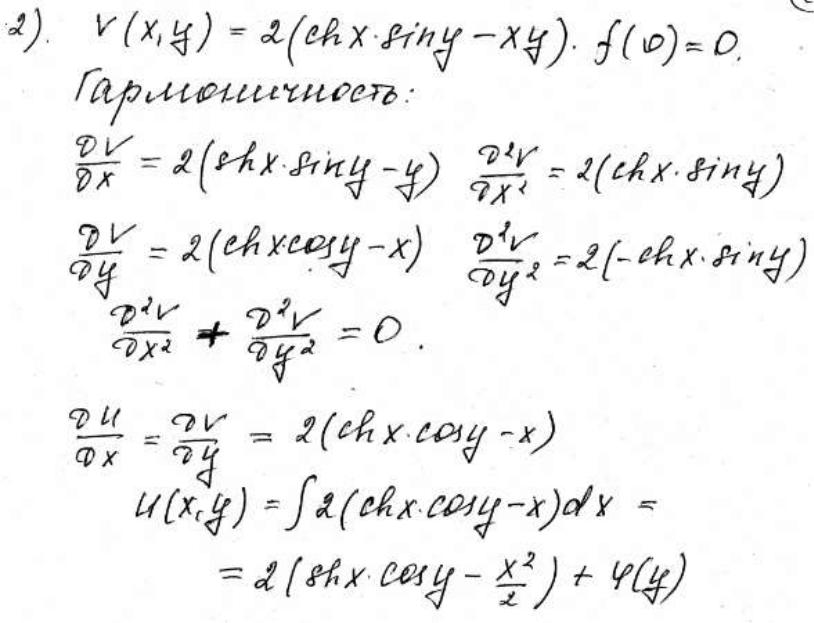 2). V(x,y) = 2(chx·siny – xy). f(0)=0.
Гармоничность:
∂V/∂x = 2(shx·siny – y) ∂²V/∂x² = 2(chx·siny)
∂V/∂y = 2(chxcosy – x) ∂²V/∂y² = 2(-chx·siny)
∂²V/∂x² + ∂²V/∂y² = 0.
∂u/∂x = ∂V/∂y = 2(chx·cosy – x)
u(x,y) = ∫2(chx·cosy – x)dx =
= 2(shx·cosy – x²/2) + φ(y)